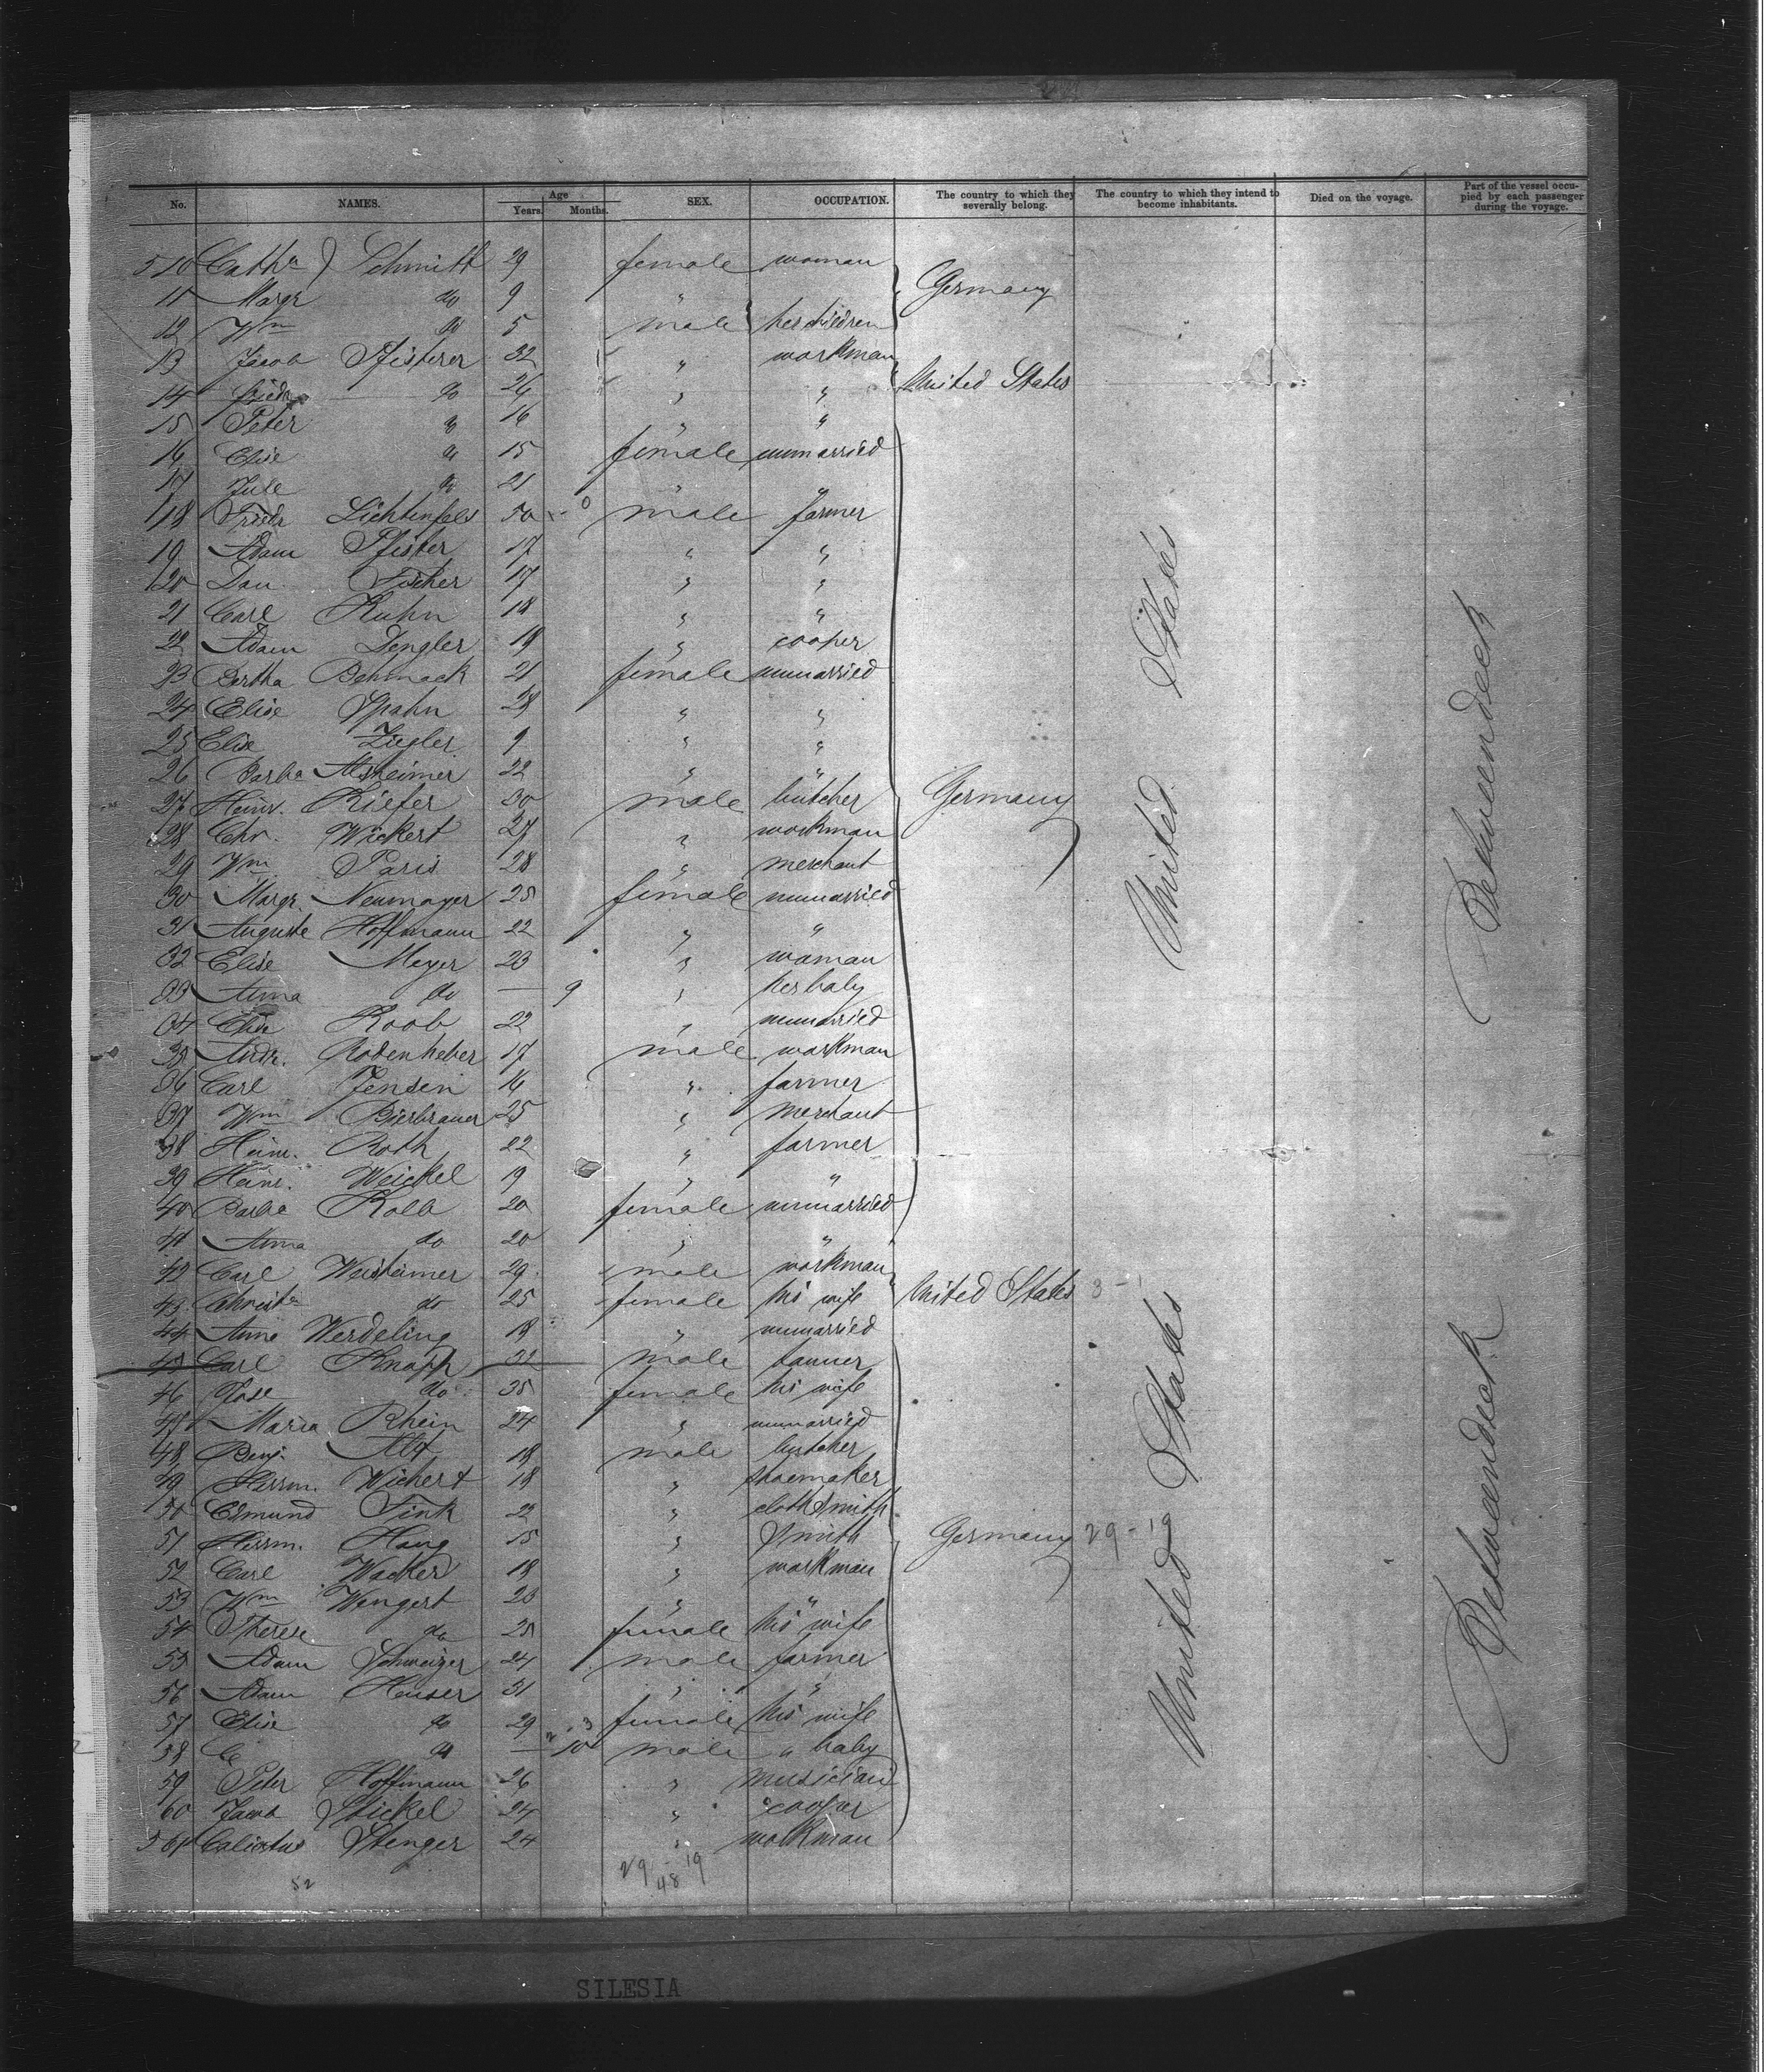 No. NAMES. Age Years. Months. SEX. OCCUPATION. The country to which they severally belong. The country to which they intend to become inhabitants. Died on the voyage. Part of the vessel occupied by each passenger during the voyage.
510 Catha Schmitt 29 female woman
11 Margr do 9 " Germany
12 Wm do 5 male her children
13 Jacob Pfisterer 32 " workman
14 Friedr do 26 " " United States
15 Peter do 16 " "
16 Elise do 15 female unmarried
17 Jule do 21 " "
18 Friedr Lichtenfels 50 male farmer
19 Adam Pfister 17 " "
20 Dan. Fischer 17 " "
21 Carl Kuhn 18 " "
22 Adam Dengler 19 " cooper
23 Bertha Behmack 21 female unmarried
24 Elise Spahn 28 " "
25 Elise Ziegler 9 " "
26 Barba Alsheimer 22 " "
27 Heinr. Kiefer 30 male butcher Germany
28 Chr. Wickert 27 " workman
29 Wm Paris 28 " merchant
30 Margr. Neumayer 25 female unmarried
31 Auguste Hoffmann 22 " "
32 Elise Meyer 23 " woman
33 Anna do — 9 " her baby
34 Elise Koob 22 " unmarried
35 Andr. Rodenheber 17 male workman
36 Carl Jensen 16 " farmer
37 Wm Bierbrauer 25 " merchant
38 Heinr. Roth 22 " farmer
39 Heinr. Weickel 19 " "
40 Barba Kolb 20 female unmarried
41 Anna do 20 " "
42 Carl Weisheimer 29 male workman
43 Christa do 25 female his wife United States 3 - 1
44 Anna Werdeling 18 " unmarried
45 Carl Knapp 32 male tanner
46 Rose do 35 female his wife
47 Maria Rhein 24 " unmarried
48 Benj. Alt 18 male butcher
49 Herrm. Wichert 18 " shoemaker
50 Edmund Fink 22 " clothsmith
51 Herrm. Haug 15 " Smith Germany 29 - 19
52 Carl Wacker 18 " workman
53 Wm Wengert 23 " "
54 Therese do 25 female his wife
55 Adam Schweizer 24 male farmer
56 Adam Heuser 31 " "
57 Elise do 29 female his wife
58 do — 10 male " baby
59 Peter Hoffmann 26 " musician
60 Jacob Stickel 24 " cooper
561 Calixtus Stenger 24 " workman
52
29 - 19
48
United States
United States
Betweendeck
Betweendeck
SILESIA